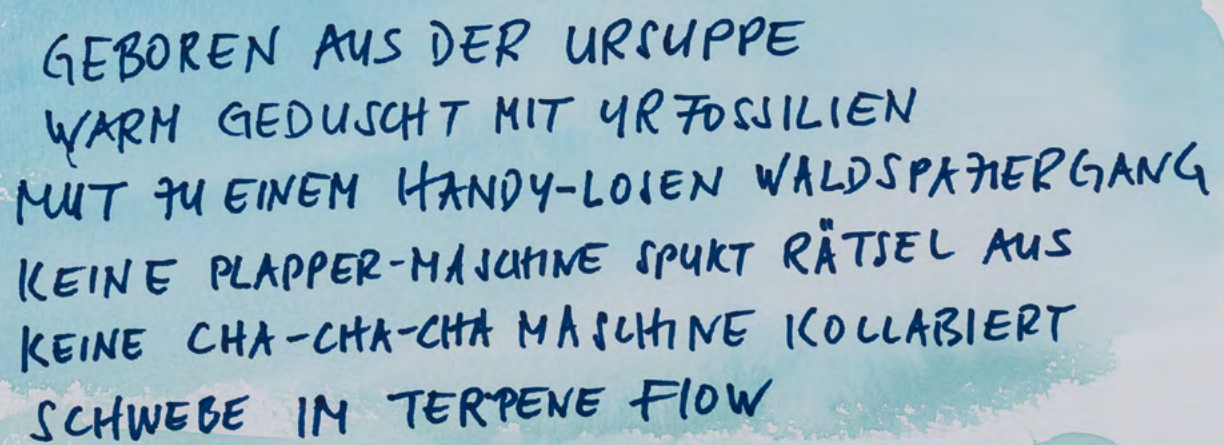 GEBOREN AUS DER URSUPPE
WARM GEDUSCHT MIT URFOSSILIEN
MUT ZU EINEM HANDY-LOSEN WALDSPAZIERGANG
KEINE PLAPPER-MASCHINE SPUKT RÄTSEL AUS
KEINE CHA-CHA-CHA MASCHINE KOLLABIERT
SCHWEBE IM TERPENE FLOW